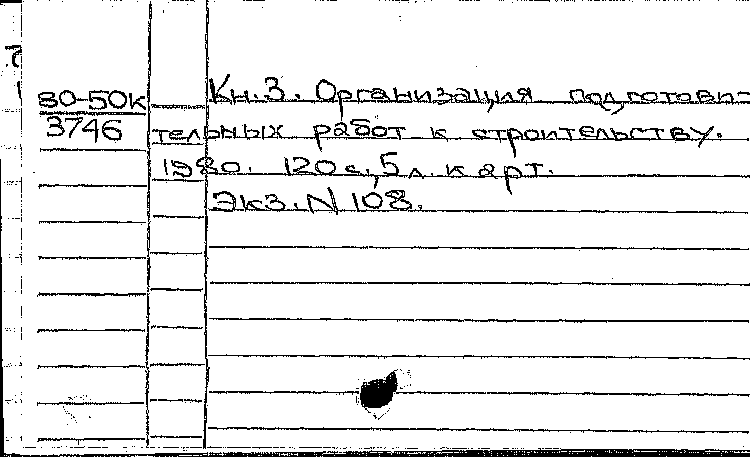 80-50к
3746
Кн.3. Организация подготови-
тельных работ к строительству.
1980. 120 с., 5 л. карт.
Экз. N 108.